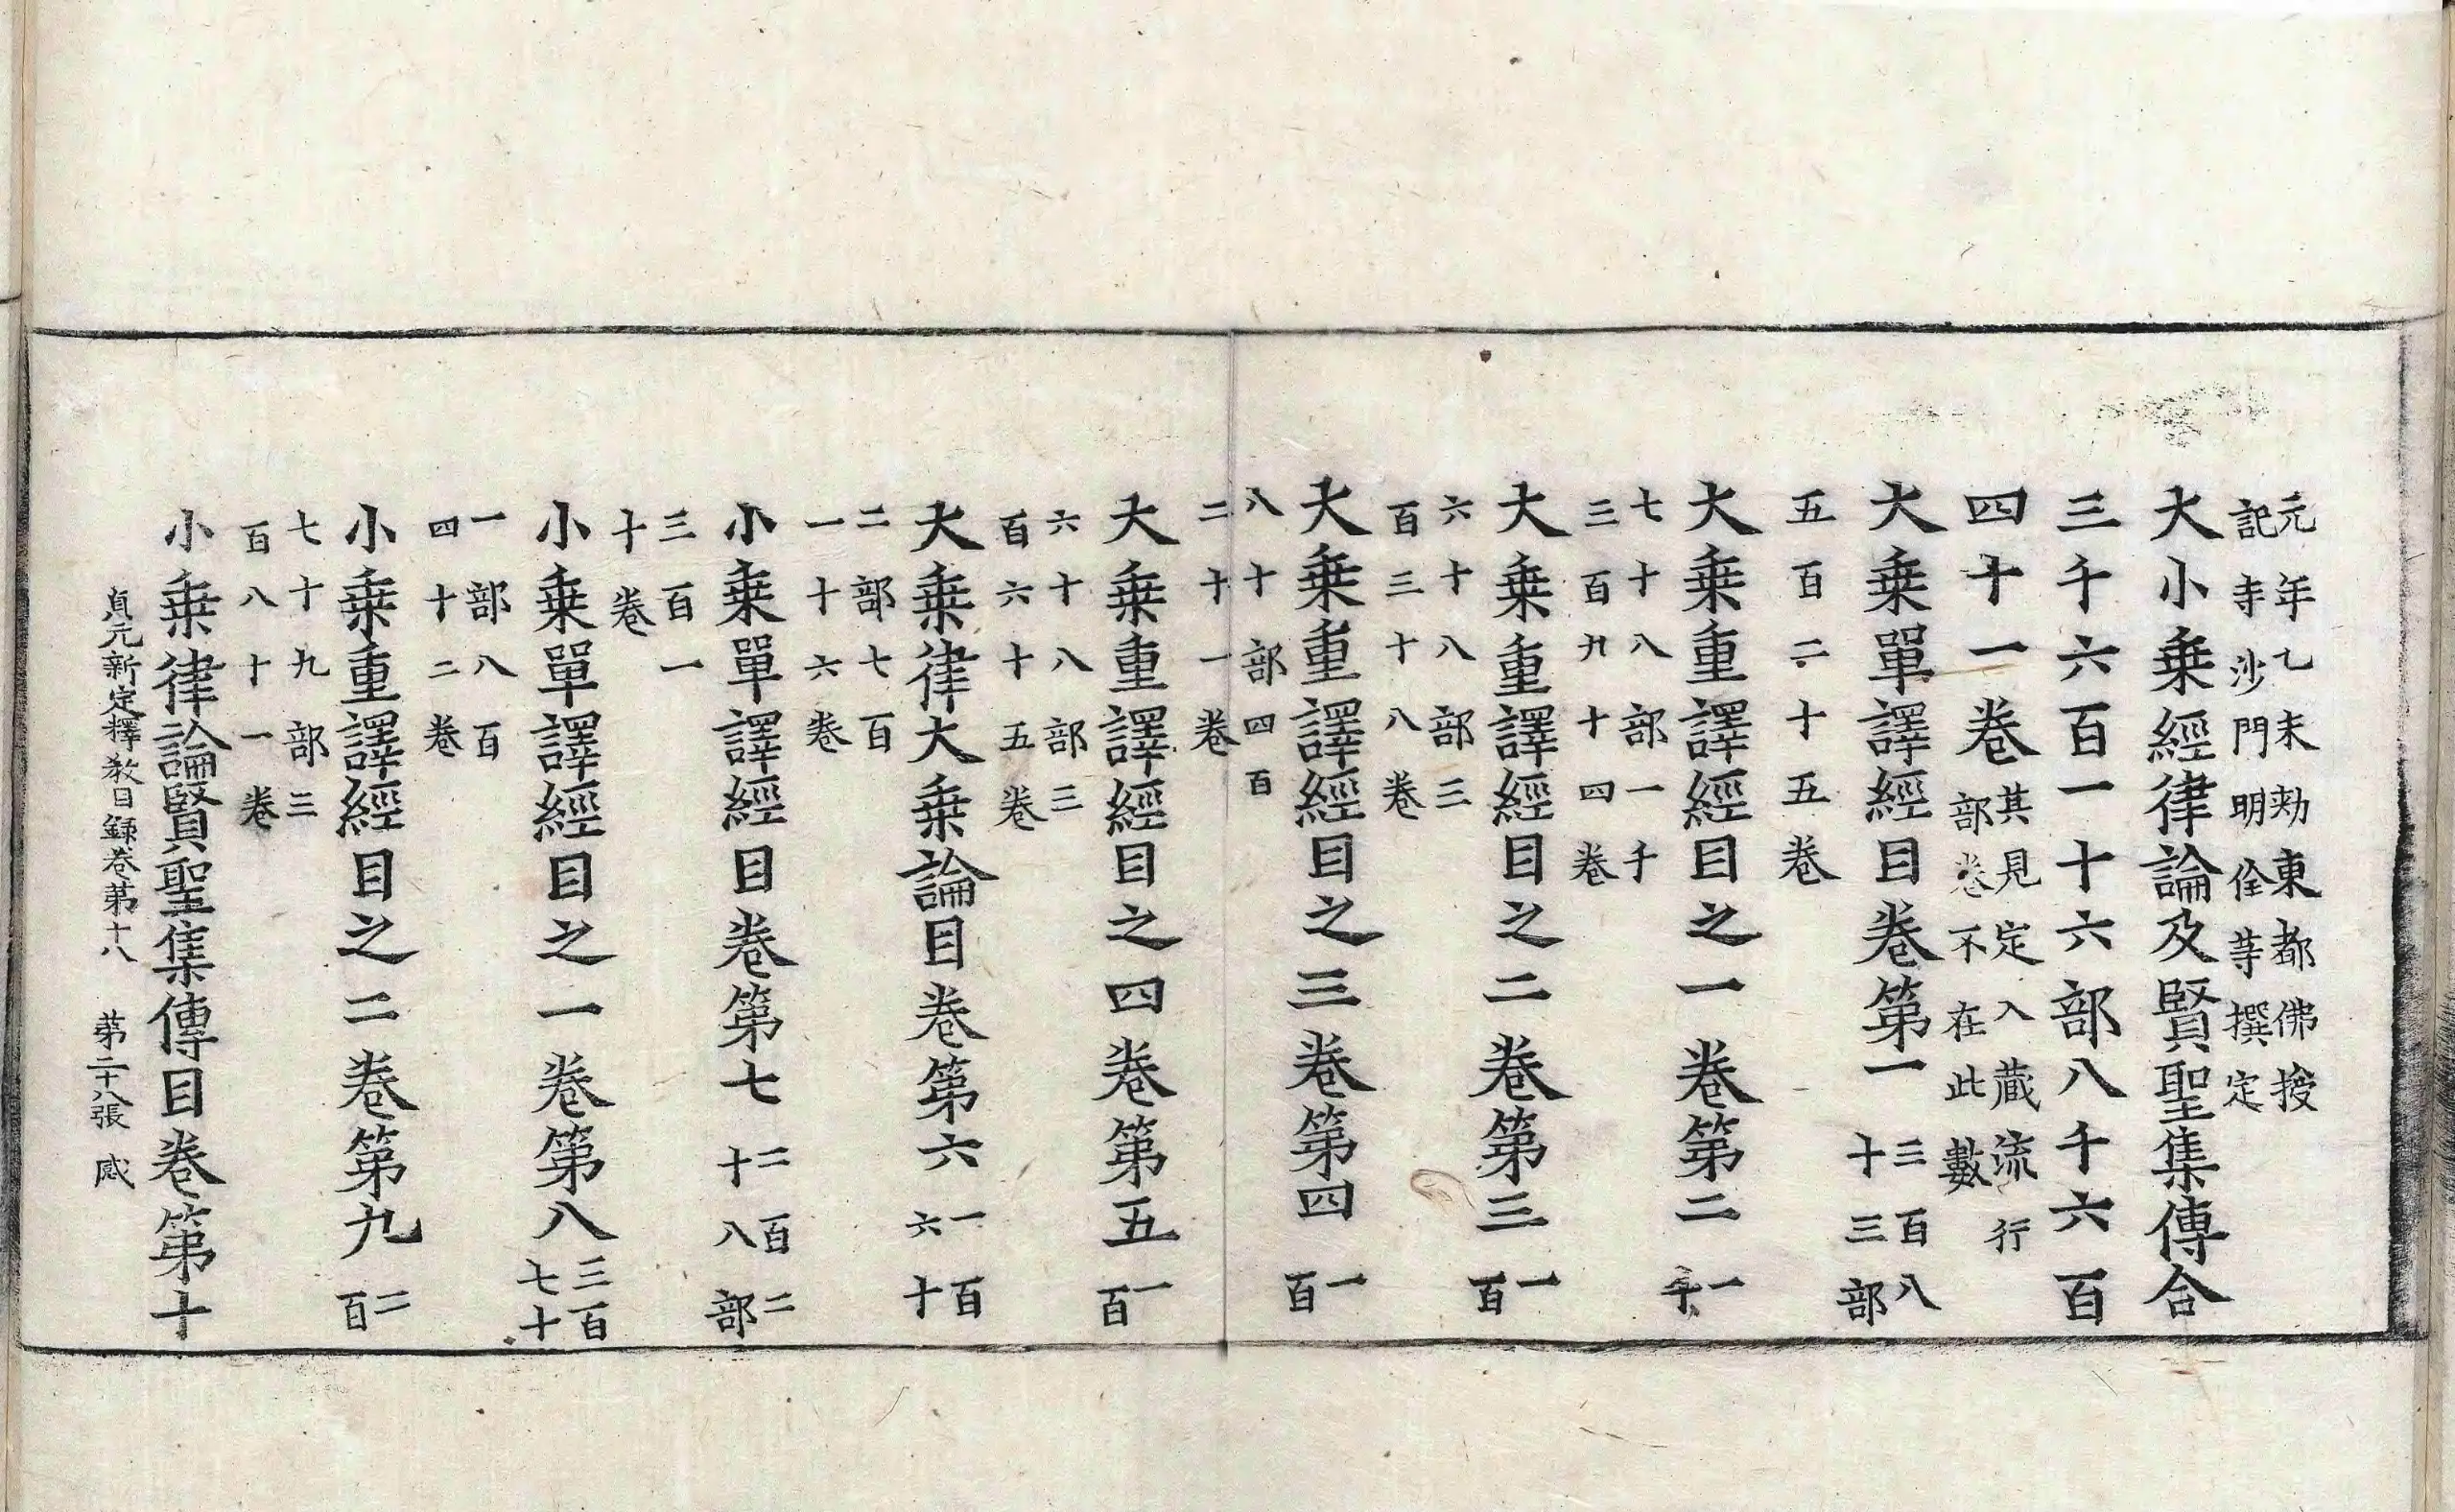 元年乙未勑東都佛授
記寺沙門明佺等撰定
大小乗經律論及賢聖集傳合
三千六百一十六部八千六百
四十一卷其見定入蔵流行
部卷不在此數
大乗單譯經目卷第一三百八
十三部
五百二十五卷
大乗重譯經目之一卷第二一
七十八部一千
三百九十四卷
大乗重譯經目之二卷第三一
百
六十八部三
百三十八卷
大乗重譯經目之三卷第四一
百
八十部四百
二十一卷
大乗重譯經目之四卷第五一
百
六十八部三
百六十五卷
大乗律大乗論目卷第六一百
六十
二部七百
一十六卷
小乗單譯經目卷第七二百二
十八部
三百一
十卷
小乗單譯經目之一卷第八三百
七十
一部八百
四十二卷
小乗重譯經目之二卷第九二
百
七十九部三
百八十一卷
小乗律論賢聖集傳目卷第十
貞元新定釋教目録卷第十八 第二十八張 感